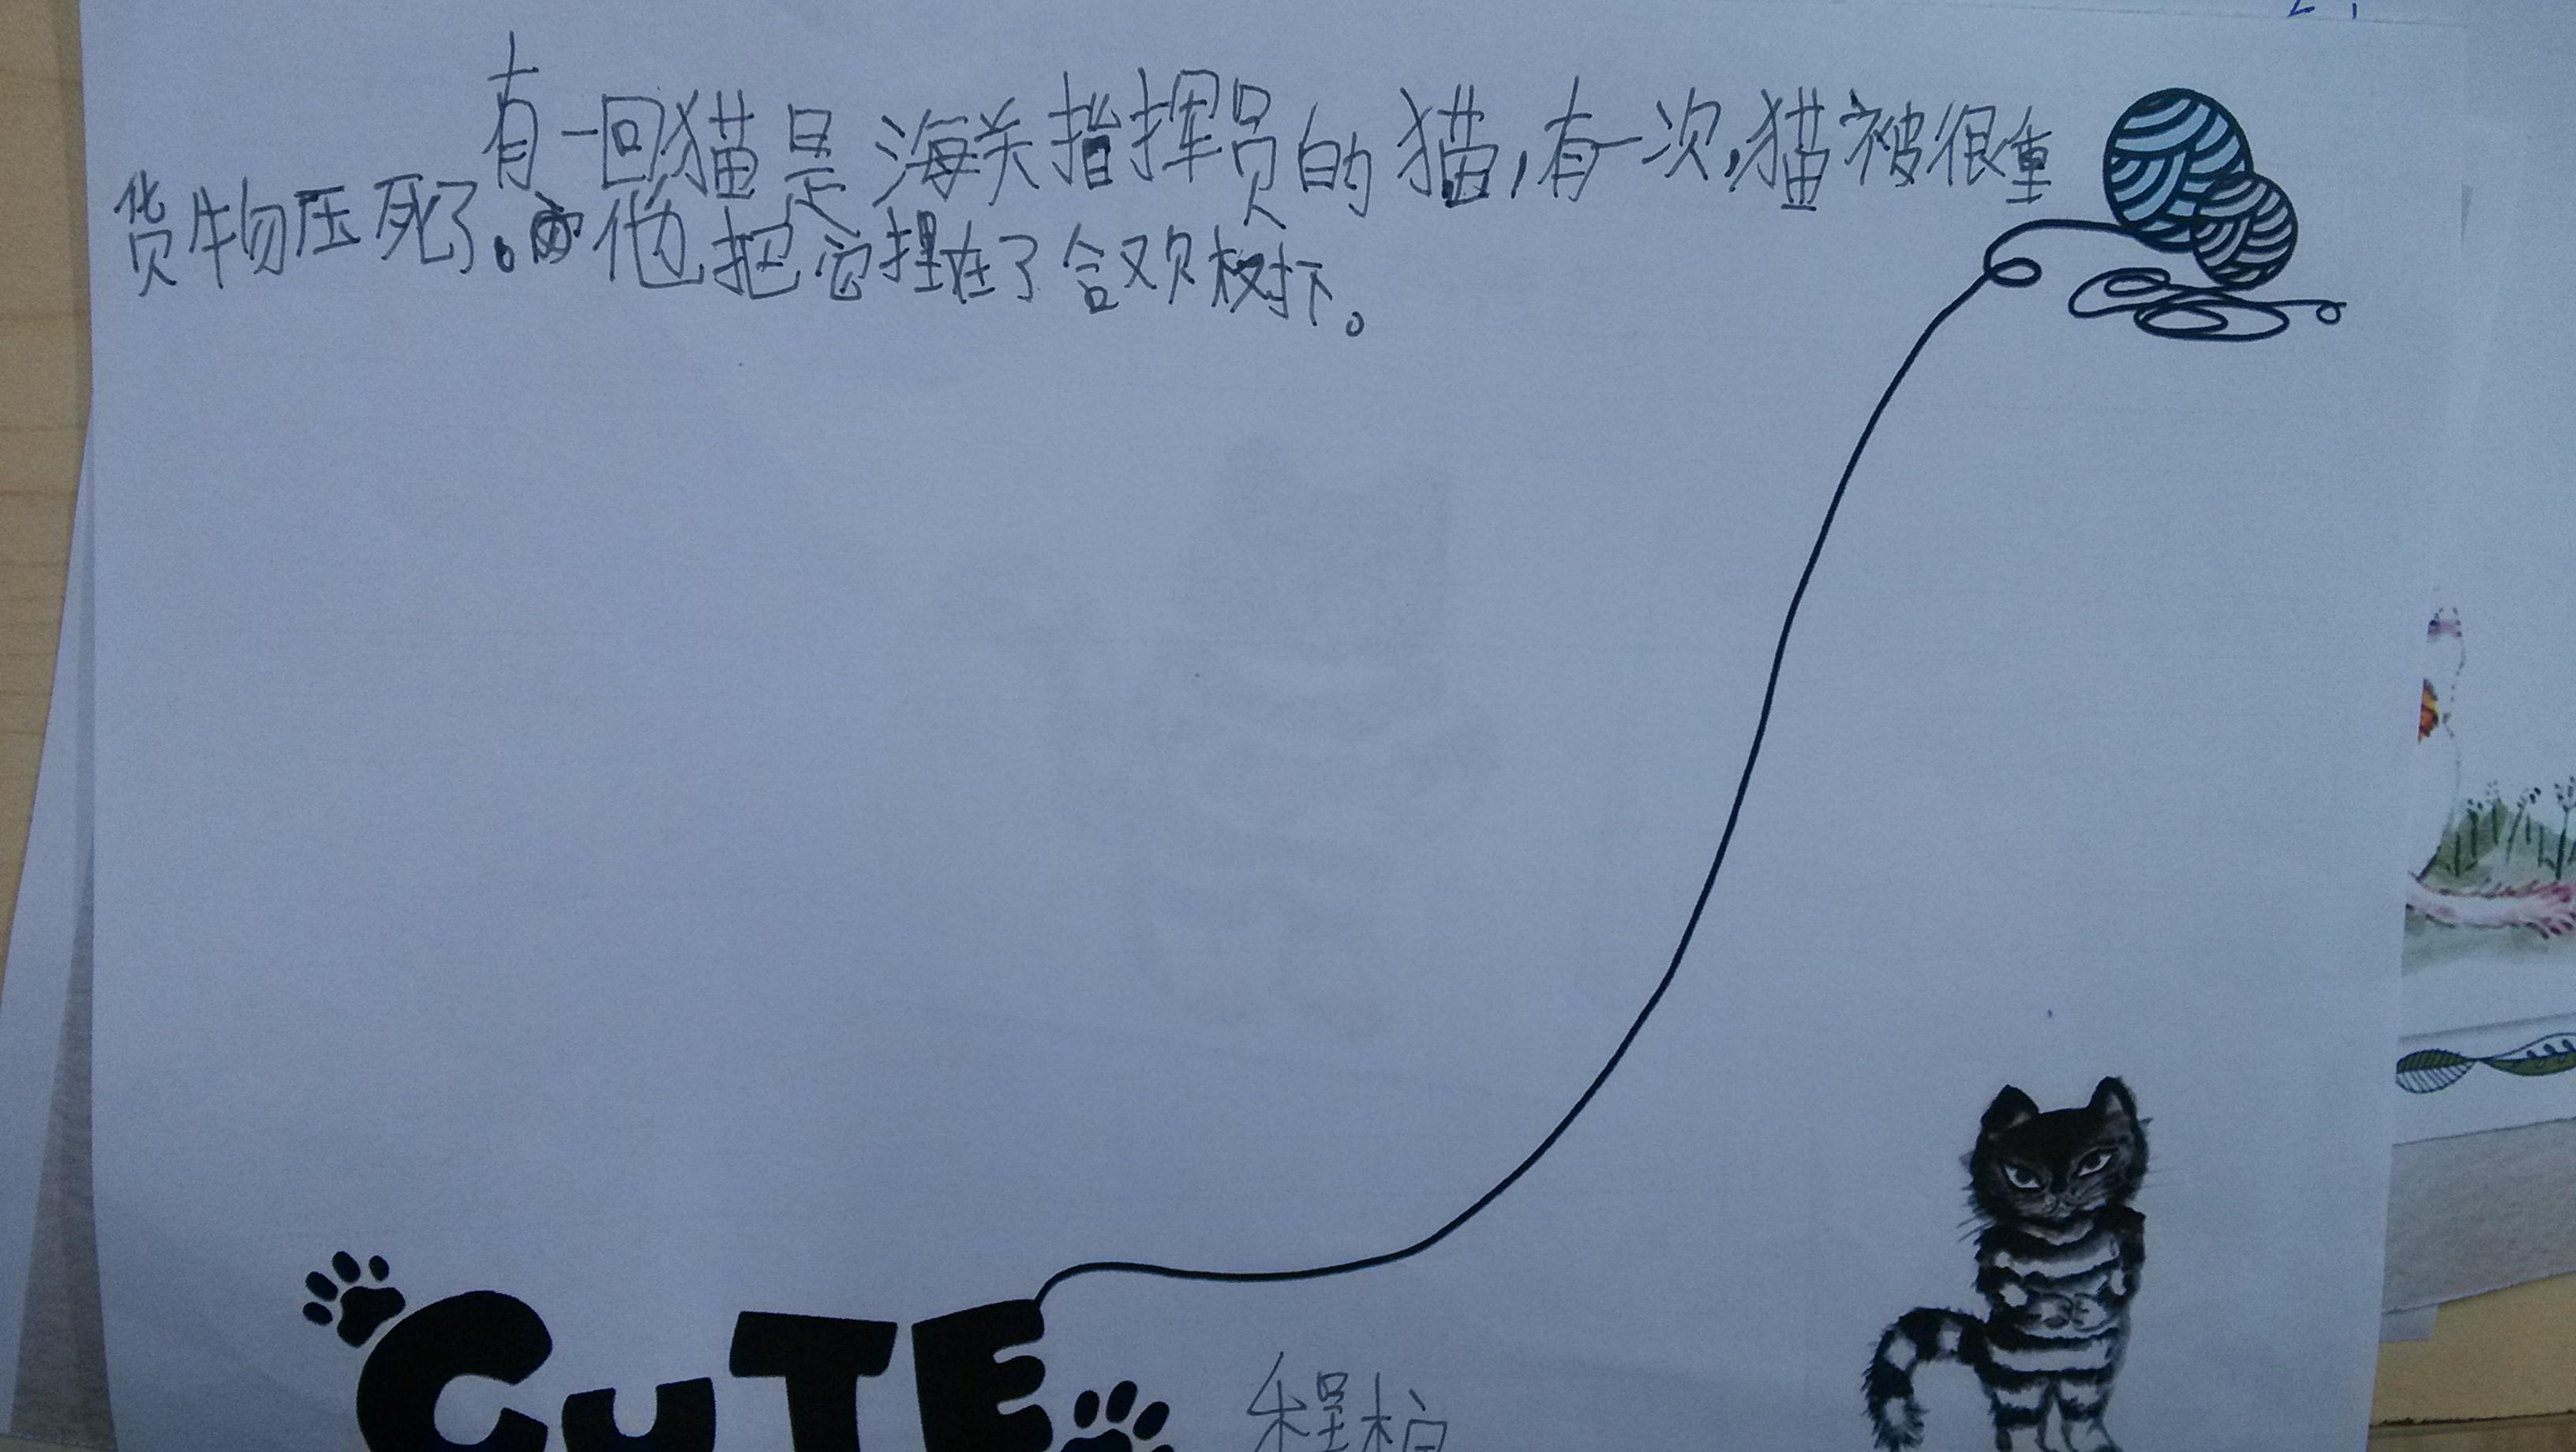 有一回猫是海关指挥员的猫,有一次,猫被很重
货物压死了。他把它埋在了合欢树下。
CuTE
程柏